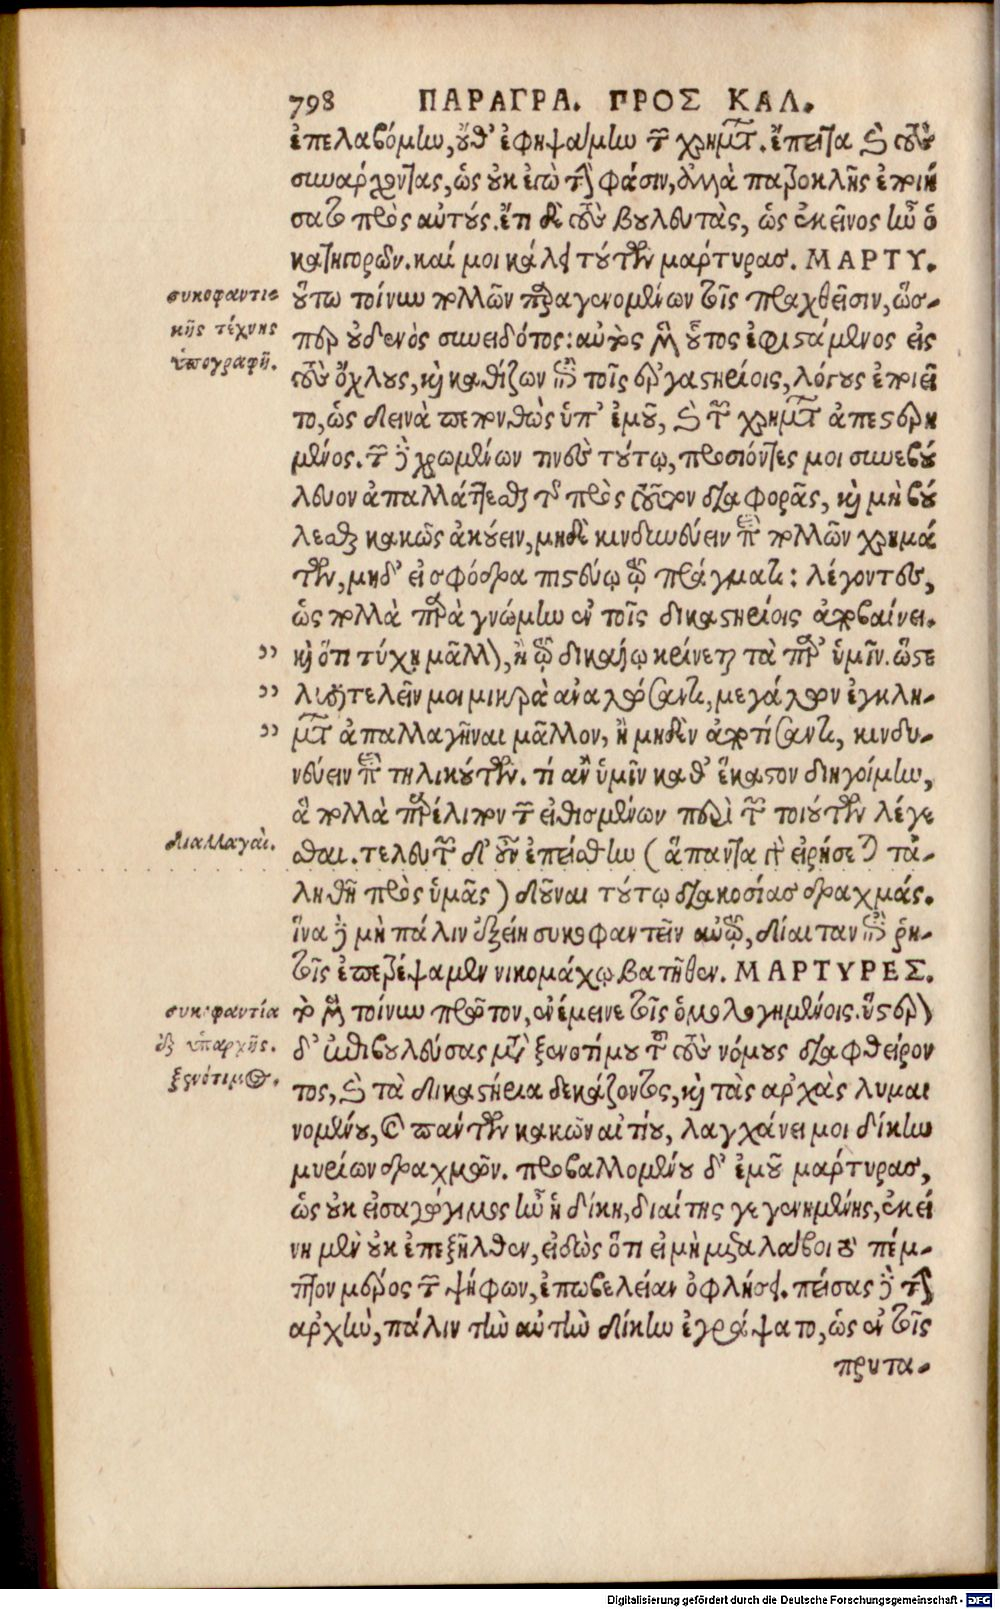 798 ΠΑΡΑΓΡΑ. ΠΡΟΣ ΚΑΛ.
ἐπελαβόμην, οὔθ' ἐφηψάμην τῶν χρημάτων. ἔπειτα καὶ τοὺς
συνάρχοντας, ὡς οὐκ ἐγὼ τὴν φάσιν, ἀλλὰ πατροκλῆς ἐποιή
σατο πρὸς αὐτούς. ἔτι δὲ τοὺς βουλευτὰς, ὡς ἐκεῖνος ἦν ὁ
κατηγορῶν. καί μοι κάλει τούτων μάρτυρας. ΜΑΡΤΥ.
συκοφαντικῆς τέχνης ὑπογραφή.
οὕτω τοίνυν πολλῶν παραγενομένων τοῖς πραχθεῖσιν, ὥσ-
περ οὐδενὸς συνειδότος: αὐτὸς μὲν οὗτος ἐφιστάμενος εἰς
τοὺς ὄχλους, καὶ καθίζων ἐπὶ τοῖς ἐργαστηρίοις, λόγους ἐποιεῖ
το, ὡς δεινὰ πεπονθὼς ὑπ' ἐμοῦ, καὶ τῶν χρημάτων ἀπεστερη
μένος. τῶν δὲ χρωμένων τινὲς τούτῳ, προσιόντες μοι συνεβού
λευον ἀπαλλάττεσθαι τῆς πρὸς τοῦτον διαφορᾶς, καὶ μὴ βού
λεσθαι κακῶς ἀκούειν, μηδὲ κινδυνεύειν περὶ πολλῶν χρημά
των, μηδ' εἰ σφόδρα πιστεύω τῷ πράγματι: λέγοντες,
ὡς πολλὰ παρὰ γνώμην ἐν τοῖς δικαστηρίοις ἀποβαίνει.
„ καὶ ὅτι τύχῃ μᾶλλον, ἢ τῷ δικαίῳ κρίνεται τὰ παρ' ὑμῖν. ὥστε
„ λυσιτελεῖν μοι μικρὰ ἀναλώσαντι, μεγάλων ἐγκλη-
„ μάτων ἀπαλλαγῆναι μᾶλλον, ἢ μηδὲν ἀποτίσαντι, κινδυ-
νεύειν περὶ τηλικούτων. τί ἂν ὑμῖν καθ' ἕκαστον διηγοίμην,
ἃ πολλὰ παρέλιπον τῶν εἰθισμένων περὶ τῶν τοιούτων λέγε
διαλλαγαὶ.
σθαι. τελευτῶν δ' οὖν ἐπείσθην (ἅπαντα γὰρ εἰρήσεται τἀ-
ληθῆ πρὸς ὑμᾶς) δοῦναι τούτῳ διακοσίας δραχμάς.
ἵνα δὲ μὴ πάλιν ἐξείη συκοφαντεῖν αὐτῷ, δίαιταν ἐπὶ ῥη-
τοῖς ἐπετρέψαμεν νικομάχῳ βατῆθεν. ΜΑΡΤΥΡΕΣ.
συκοφαντία ἐξ ὑπαρχῆς. ξενότιμος.
τὸ μὲν τοίνυν πρῶτον, ἐνέμεινε τοῖς ὁμολογημένοις. ὕστερον
δ' ἐπιβουλεύσας μετὰ ξενοτίμου τοῦ τοὺς νόμους διαφθείρον
τος, καὶ τὰ δικαστήρια δεκάζοντος, καὶ τὰς ἀρχὰς λυμαι
νομένου, καὶ πάντων κακῶν αἰτίου, λαγχάνει μοι δίκην
μυρίων δραχμῶν. προβαλλομένου δ' ἐμοῦ μάρτυρας,
ὡς οὐκ εἰσαγώγιμος ἦν ἡ δίκη, διαίτης γεγενημένης, ἐκεί
νῃ μὲν οὐκ ἐπεξῆλθεν, εἰδὼς ὅτι εἰ μὴ μεταλάβοι τὸ πέμ-
πτον μέρος τῶν ψήφων, ἐπωβελείαν ὀφλήσει. πείσας δὲ τὴν
ἀρχὴν, πάλιν τὴν αὐτὴν δίκην ἐγράψατο, ὡς ἐν τοῖς
πρυτα-
Digitalisierung gefördert durch die Deutsche Forschungsgemeinschaft - DFG